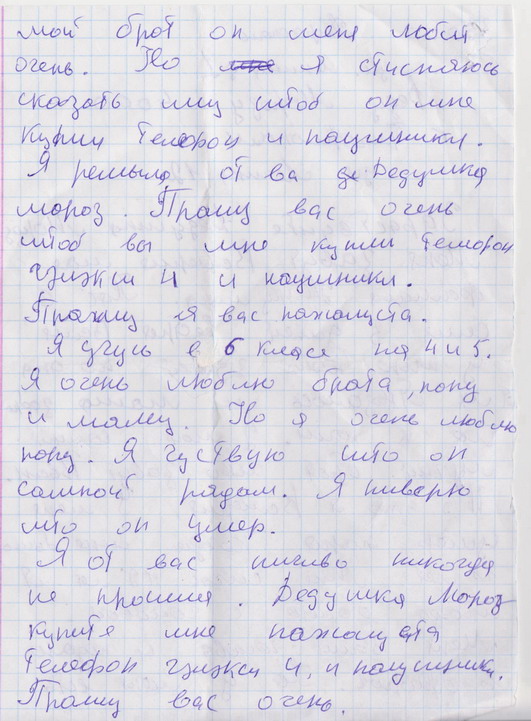 мой брат он меня любит
очень. Но мне я стисняюсь
сказать ему штоб он мне
купил телефон и наушники.
Я решыла от ва де Дедушка
мороз. Прашу вас очень
штоб вы мне купили телефон
гэлэкси 4 и наушники.
Прашу я вас пажалуста.
Я учусь в 6 класе на 4 и 5.
Я очень люблю брата, папу
и маму. Но я очень люблю
папу. Я чуствую што он
самной рядам. Я ниверю
што он умер.
Я от вас ничиво никогда
не прасила. Дедушка Мороз
купите мне пажалуста
телефон гэлэкси 4, и наушники.
Прашу вас очень.